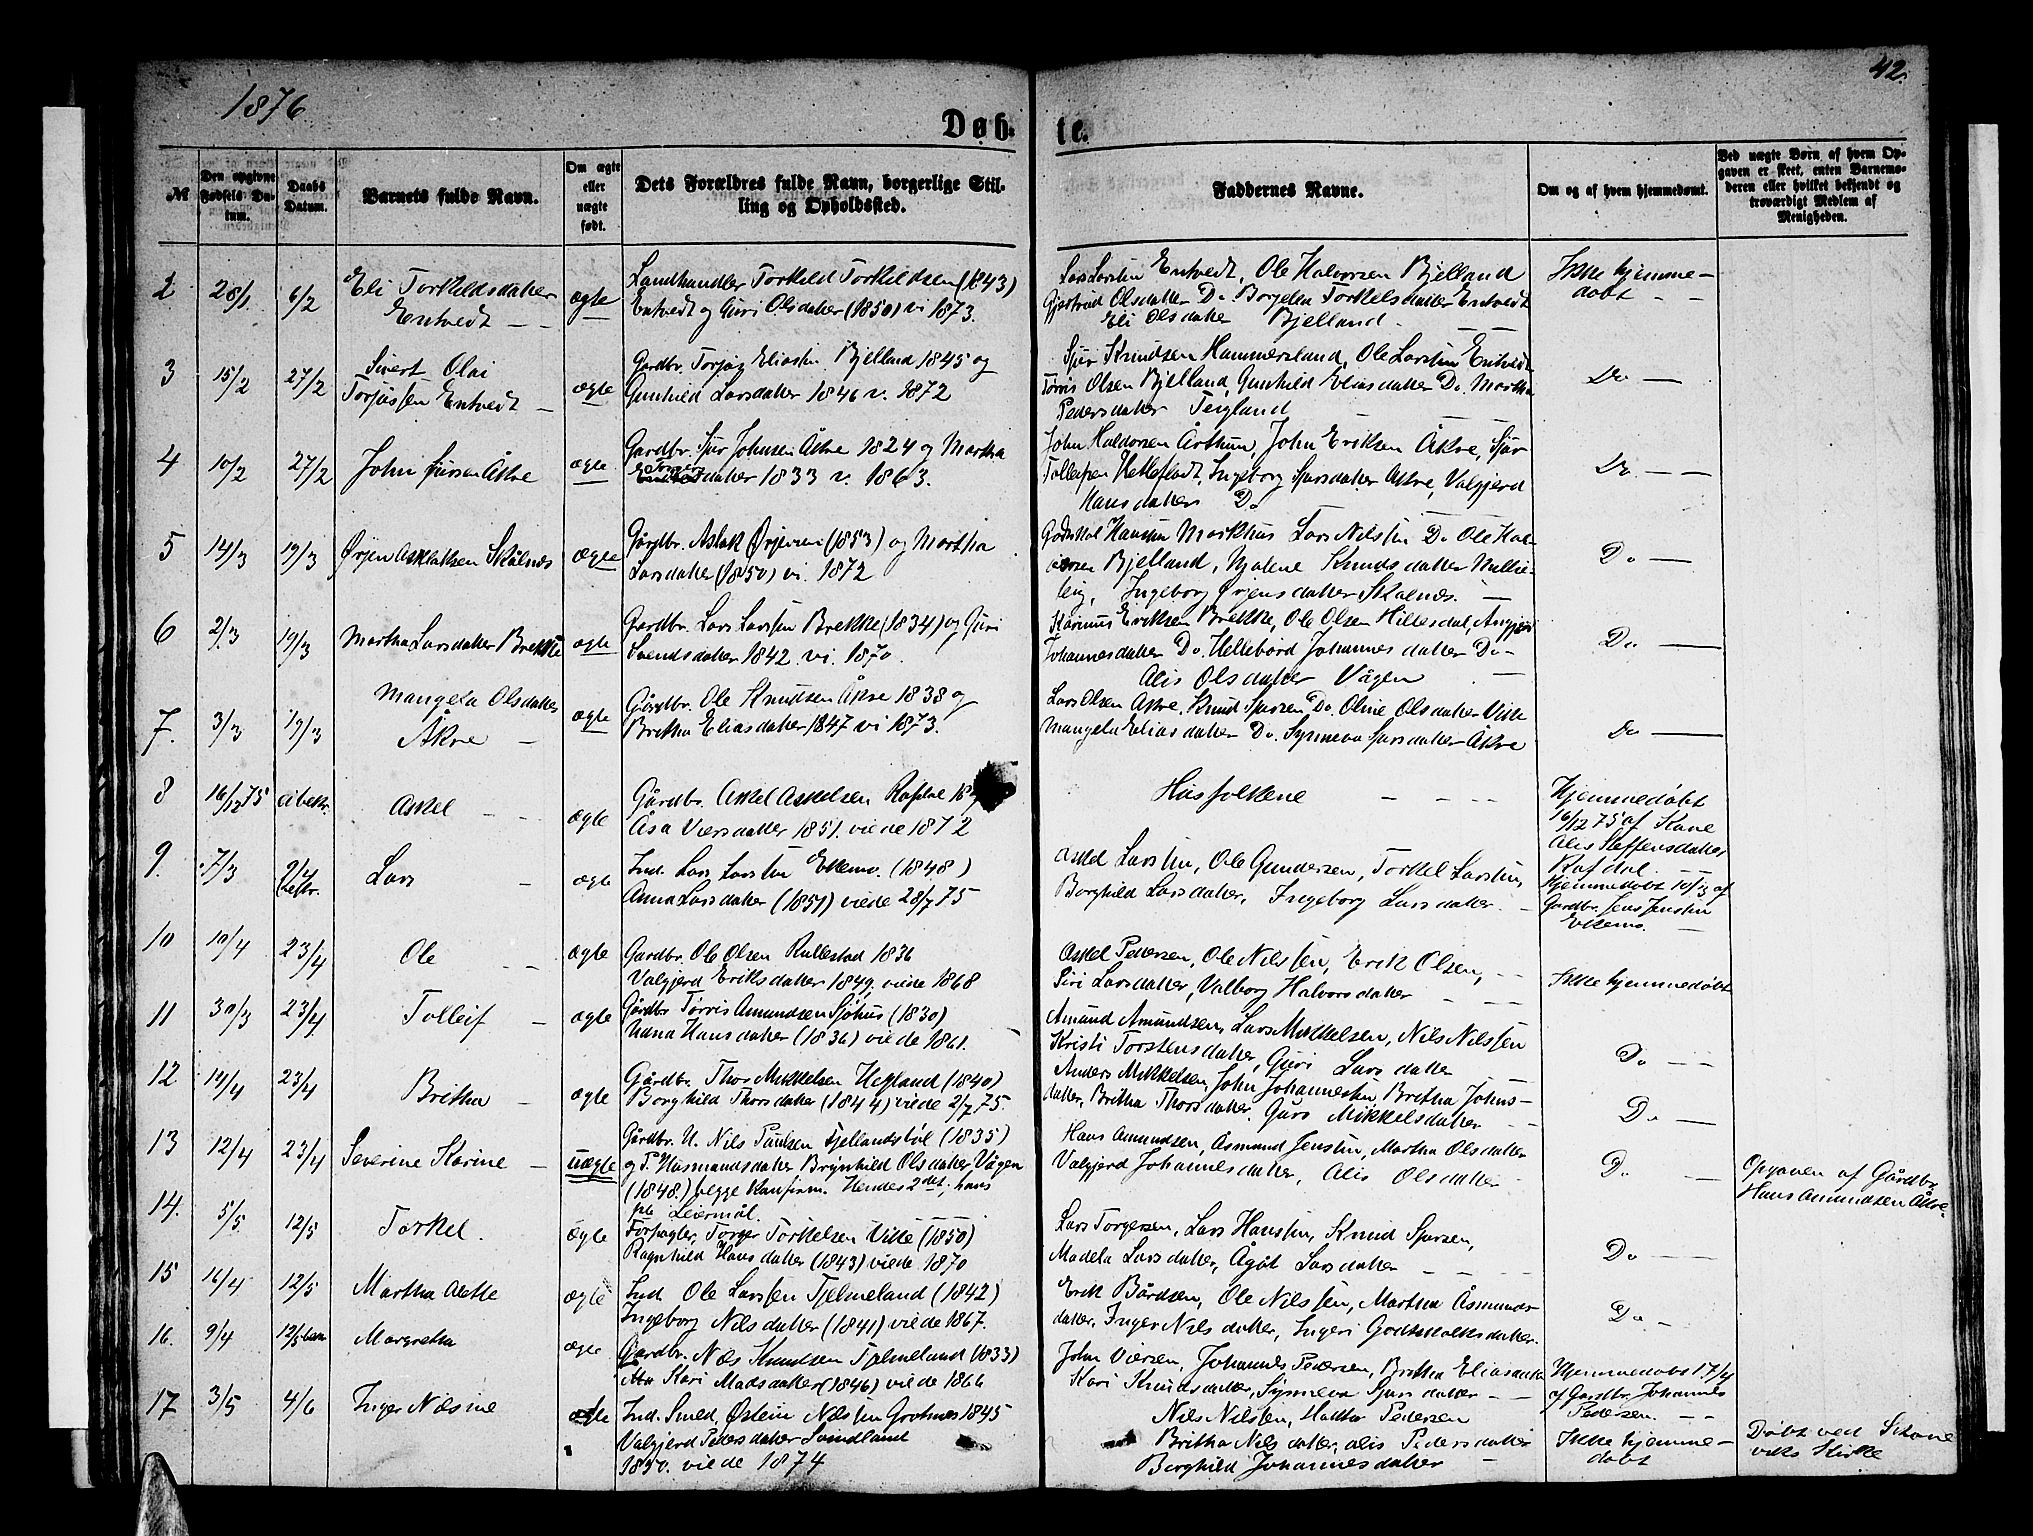 1876
42.
Døb-
te.
№
Den opgivne Fødsels Datum.
Daabs Datum.
Barnets fulde Navn.
Om ægte eller uægte født.
Dets Forældres fulde Navn, borgerlige Stilling og Opholdssted.
Faddernes Navne.
Om og af hvem hjemmedøbt.
Ved uægte Børn af hvem Opgaven er skeet, enten Barnemoderen eller hvilket bekjendt og troværdigt Medlem af Menigheden.
2 28/1 6/2 Eli Torkildsdatter
Entvedt
ægte
Landhandler Torkild Torkildsen (1843)
Entvedt og Guri Olsdatter (1850) vi 1873.
Lars Larssen Entvedt, Ole Halvorsen Bjelland
Gjertrud Olsdatter Do Borgela Torkelsdatter Entvedt
Eli Olsdatter Bjelland.
Ikke hjemme-
døbt
3 15/2 27/2 Sivert Olai
Torjussen Entvedt
ægte
Gardbr. Torjus Eliassen Bjelland 1845 og
Gunhild Larsdatter 1846 v. 1872
Sjur Knudsen Hammersland, Ole Larssen Entvedt
Torris Olsen Bjelland, Gunhild Eliasdatter Do. Martha
Pedersdatter Teigland
Do
4 10/2 27/2 John Sjursen Åkre
ægte
Gardbr. Sjur Johnsen Åkre 1824 og Martha
datter 1833 v. 1863.
John Haldorsen Årthun, John Eriksen Åkre, Sjur
Tolleifsen Hetleflodt, Ingeborg Sjursdatter Åkre, Valgjerd
Hansdatter Do
Do.
5 14/3 19/3 Ørjen Aslaksen Skålnes
ægte
Gårdbr. Aslak Ørjensen (1853) og Martha
Larsdatter (1850) vi. 1872
Godskal Hansen Markhus Lars Nilssen Do Ole Hal-
vorsen Bjelland, Malene Knudsdatter Mellie-
teig, Ingeborg Ørjensdatter Skålnes.
Do
6 2/3 19/3 Martha Larsdatter Brekke
ægte
Gardbr. Lars Larssen Brekke (1834) og Guri
Svendsdatter 1842. vi. 1870.
Rasmus Eriksen Brekke, Ole Olsen Hillesdal,
Johannesdatter Do. Hellebord Johannesdatter Do
Alis Olsdatter Vågen
Do
7. 3/3 19/3 Mangela Olsdatter
Åkre
ægte
Gårdbr. Ole Knudsen Åkre 1838 og
Britha Eliasdatter 1847 vi 1873.
Lars Olsen Åkre. Knud Sjursen Do. Oline Olsdatter Ville
Mangela Eliasdatter Do. Synneva Sjursdatter Åkre
Do
8 16/12 75 Askel
ægte
Gårdbr. Askel Askelsen Rafdal
Åsa Viersdatter 1851. viede 1872
Husfolkene
Hjemmedøbt
16/12 75 af Kone
Alis Steffensdatter
Rafdal.
9. 7/3 2/4 Lars
ægte
Ind. Lars Larssen Ekemo. (1848)
Anna Larsdatter (1851) viede 28/7 75
Askel Larssen, Ole Gundersen, Torkel Larssen,
Borghild Larsdatter, Ingeborg Larsdatter.
Hjemmedøbt 10/3 af
Gardbr. Jens Jenssen
Ekemo.
10 10/4 23/4 Ole
ægte
Gardbr. Ole Olsen Rullestad 1836
Valgjerd Eriksdatter 1849. viede 1868
Askel Pedersen, Ole Nilssen, Erik Olsen,
Siri Larsdatter, Valborg Halvorsdatter
Ikke hjemmedøbt
11 30/3 23/4 Tolleif
ægte
Gårdbr Torris Amundsen Sjøhus (1830)
Udna Hansdatter (1836) viede 1861.
Amund Amundsen, Lars Mikkelsen, Nils Nilssen
Kristi Torstensdatter, Guri Larsdatter
Do
12 19/4 23/4 Britha
ægte
Gårdbr. Thor Mikkelsen Hegland (1840)
Borghild Thorsdatter (1844) viede 2/7 75.
Anders Mikkelsen, John Johannessen Britha Johns-
datter, Britha Thorsdatter. Guro Mikkelsdatter
Do
13 12/4 23/4 Severine Karine
uægte
Gårdbr. U. Nils Paulsen Fjellandsbøl (1835)
og P. Husmandsdatter Brynhild Olsdatter Vågen
(1848.) begge Konfirm. Hendes 2det, hans
Leiermål.
Hans Amundsen, Åsmund Jenssen, Martha Olsdatter
Valgjerd Johannesdatter, Alis Olsdatter
Do
Opgaven af Gårdbr.
Hans Amundsen Åkre.
14. 5/5 12/5 Torkel.
ægte
Forpagter, Torger Torkelsen Ville (1850)
Ragnhild Hansdatter (1843) viede 1870
Lars Torgersen, Lars Hanssen, Knud Sjursen,
Madela Larsdatter, Ågåt Larsdatter
Do
15 16/4 12/5 Martha Aette
ægte
Ind. Ole Larssen Tjelmeland (1842)
Ingeborg Nilsdatter (1841) viede 1867.
Erik Bårdsen, Ole Nilssen, Martha Åsmunds-
datter, Inger Nilsdatter, Ingeri Godtskalksdatter.
Do.
16. 9/4 12/5 Margretha
ægte
Gardbr. Nils Knudsen Tjelmeland (1833)
Kari Madsdatter (1846) viede 1866
John Viersen, Johannes Pedersen, Britha Eliasdatter
Kari Knudsdatter, Synneva Sjursdatter
Hjemmedøbt 17/4
af Gardbr. Johannes
Pedersen.
17 3/5 4/6 Inger Nilsine
ægte
Ind. Smed, Østein Nilssen Grotnes 1845
Valgjerd Pedersdatter Svindland
1850. viede 1874
Nils Nilssen, Haktor Pedersen
Britha Nilsdatter, Alis Pedersdatter
Borghild Johannesdatter
Ikke hjemme-
døbt
Døbt ved Skåne
viks Kirke